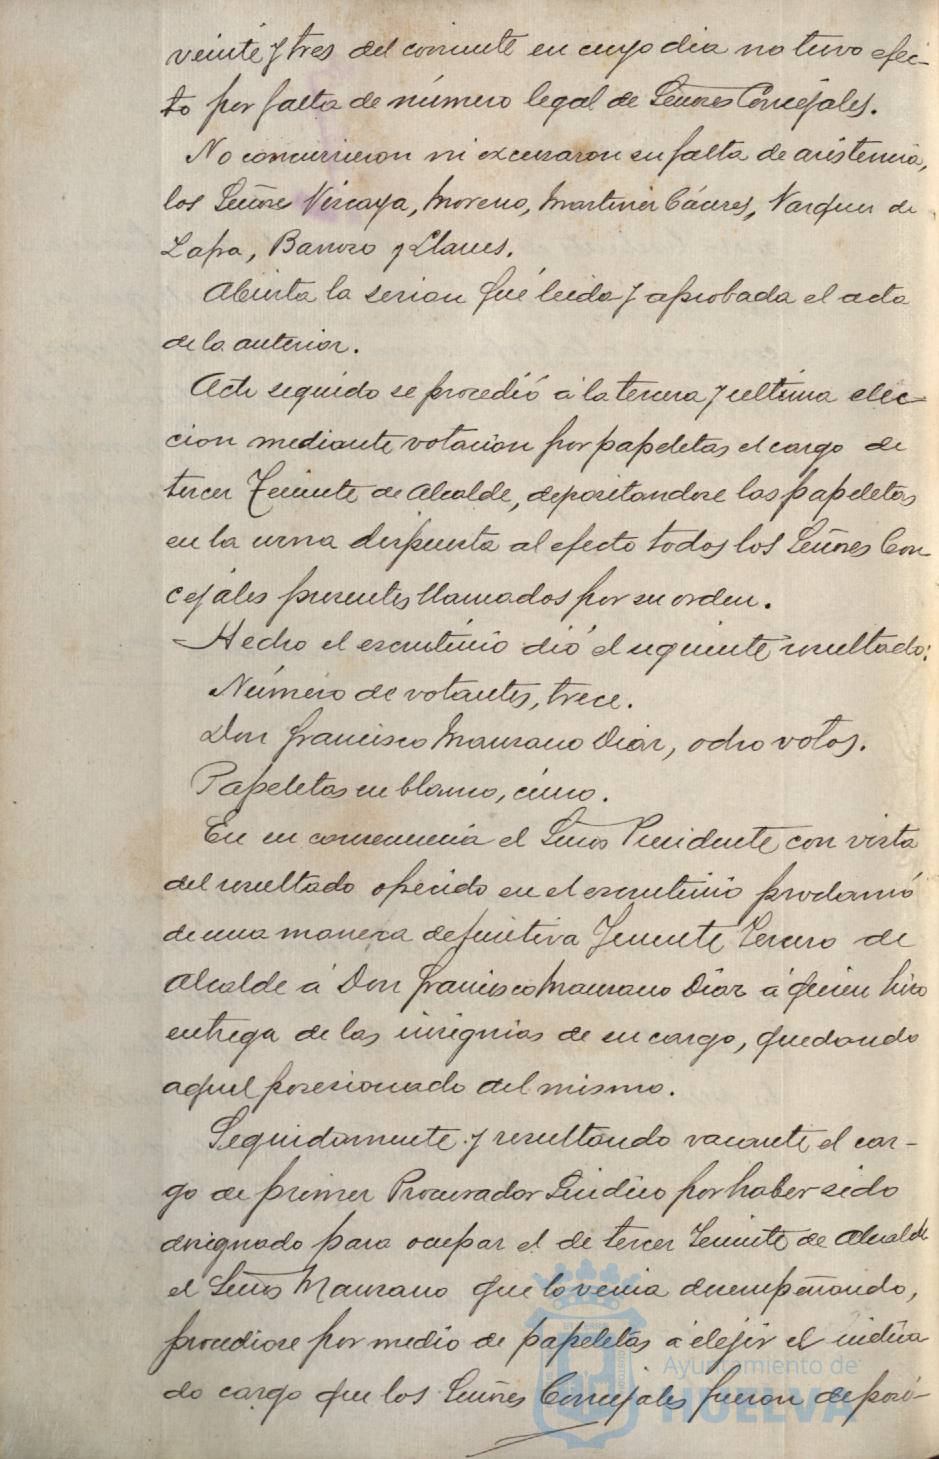 veinte y tres del corriente en cuyo dia no tuvo efec-
to por falta de número legal de Señores Concejales.
No concurrieron ni excusaron su falta de asistencia,
los Señores Vizcaya, Moreno, Martinez Cáceres, Vazquez de
Zapa, Barroso y Claues.
Abierta la sesion fué leida y aprobada el acta
de la anterior.
Acto seguido se procedió á la tercera y ultima elec-
cion mediante votacion por papeletas el cargo de
tercer Teniente de Alcalde, depositandose las papeletas
en la urna dispuesta al efecto todos los Señores Con
cejales presentes llamados por su orden.
Hecho el escrutinio dió el siguiente resultado:
Número de votantes, trece.
Don Francisco Manzano Diaz, ocho votos.
Papeletas en blanco, cinco.
En su consecuencia el Señor Presidente con vista
del resultado ofrecido en el escrutinio proclamó
de una manera definitiva Teniente Tercero de
Alcalde á Don Francisco Manzano Diaz á quien hizo
entrega de las insignias de su cargo, quedando
aquel posesionado del mismo.
Seguidamente y resultando vacante el car-
go de primer Procurador Sindico por haber sido
designado para ocupar el de tercer Teniente de Alcalde
el Señor Manzano que lo venia desempeñando,
procediose por medio de papeletas á elejir el indica
do cargo que los Señores Concejales fueron deposi-
Ayuntamiento de
HUELVA